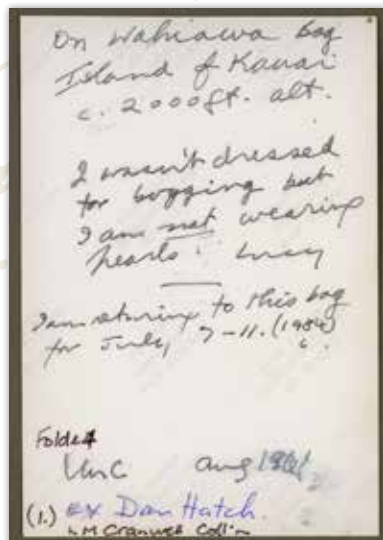 On Wahiawa bog
Island of Kauai
c. 2000ft. alt.
I wasn't dressed
for bogging but
I am not wearing
pearls! Lucy
I am returning to this bog
for July, 7-11. (1984)
Folder
LMC Aug
(1.) Ex Dan Hatch.
LM Cranwell Coll'n